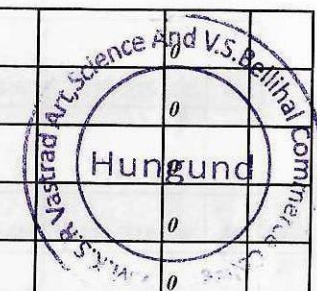 S.R Vastrad Art,Science And V.S.Bellihal Commerce
Hungund
0
0
0
0
0